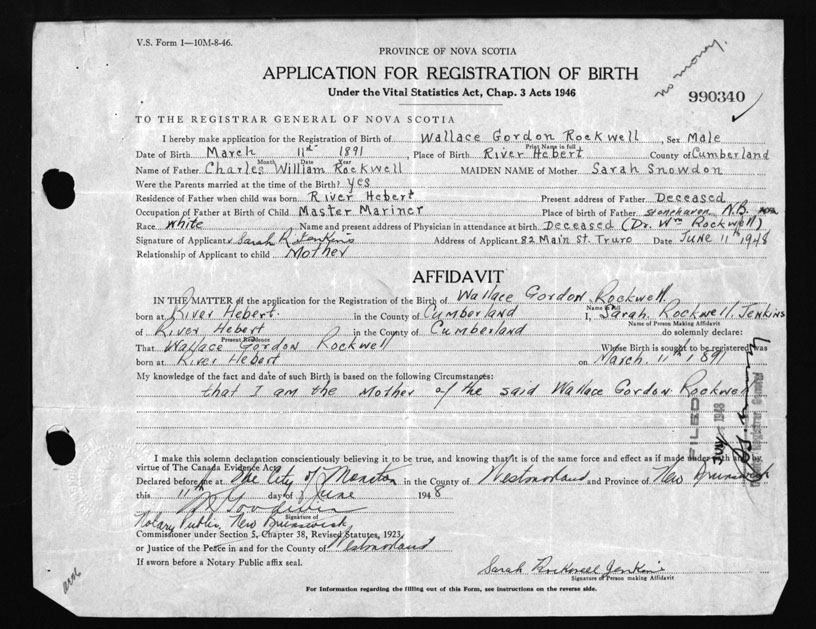 V.S. Form 1—10M-8-46.
PROVINCE OF NOVA SCOTIA
no money.
APPLICATION FOR REGISTRATION OF BIRTH
Under the Vital Statistics Act, Chap. 3 Acts 1946
990340
TO THE REGISTRAR GENERAL OF NOVA SCOTIA
I hereby make application for the Registration of Birth of Wallace Gordon Rockwell, Sex Male
Print Name in full
Date of Birth March 11th 1891, Place of Birth River Hebert County of Cumberland
Month Date Year
Name of Father Charles William Rockwell MAIDEN NAME of Mother Sarah Snowdon
Were the Parents married at the time of the Birth? yes
Residence of Father when child was born River Hebert Present address of Father Deceased
Occupation of Father at Birth of Child Master Mariner Place of birth of Father Stonehaven N.B.
Race White Name and present address of Physician in attendance at birth Deceased (Dr. Wm Rockwell)
Signature of Applicant Sarah R. Jenkins Address of Applicant 82 Main St. Truro Date June 11th 1948
Relationship of Applicant to child Mother
AFFIDAVIT
IN THE MATTER of the application for the Registration of the Birth of Wallace Gordon Rockwell
Name in full
born at River Hebert. in the County of Cumberland I, Sarah Rockwell Jenkins
Name of Person Making Affidavit
of River Hebert in the County of Cumberland do solemnly declare:
Present Residence
That Wallace Gordon Rockwell Whose Birth is sought to be registered was
born at River Hebert on March 11th 1891
My knowledge of the fact and date of such Birth is based on the following Circumstances:
that I am the Mother of the said Wallace Gordon Rockwell
FILED
1948
I make this solemn declaration conscientiously believing it to be true, and knowing that it is of the same force and effect as if made under oath and by
virtue of The Canada Evidence Act.
Declared before me at the City of Moncton in the County of Westmorland and Province of New Brunswick
this 11th day of June 1948
Goodwin
Signature of
Notary Public, New Brunswick
Commissioner under Section 5, Chapter 38, Revised Statutes, 1923
or Justice of the Peace in and for the County of Westmorland
If sworn before a Notary Public affix seal.
Sarah Rockwell Jenkins
Signature of Person making Affidavit
For Information regarding the filling out of this Form, see instructions on the reverse side.